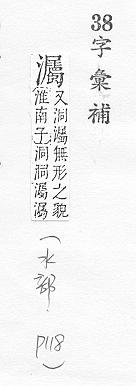 38 字彙補
灟
又洞灟無形之貌
淮南子洞洞灟灟
(水部. P118)